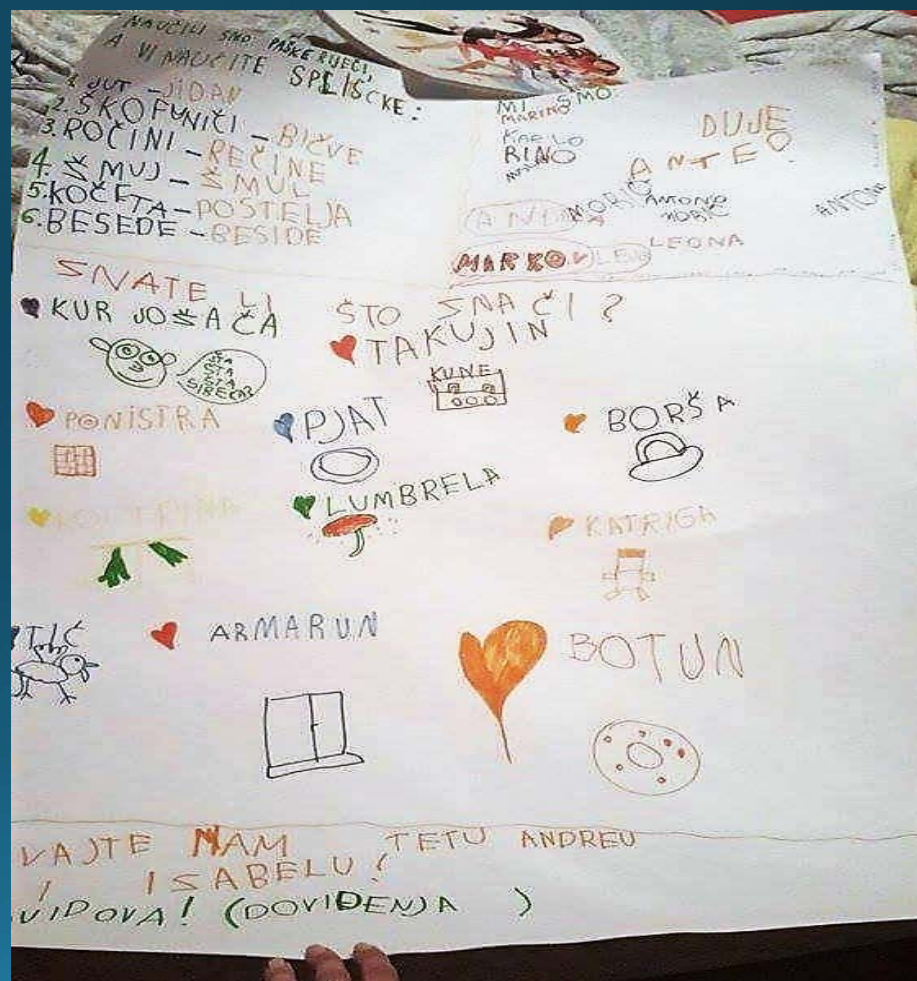 NAUČILI SMO PAŠKE RIJEČI,
A VI NAUČITE SPLISCKE:
1. JUT - JIDAN
2. ŠKOFUNIČI - BIČVE
3. ROČINI - REČINE
4. ŠMUJ - ŠMUL
5. KOČETA - POSTELJA
6. BESEDE - BESIDE
MI SMO
MARINO
KARLO
RINO
DUJE
ANTE
MORIĆ
ANTONO
MORIĆ
ANTONE
MARKO
LEONA
SNATE LI ŠTO SNAČI?
KURJOŠAČA
ŠTA
ŠTA
ŠTA
TAKUJIN
KUNE
PONISTRA
PJAT
BORŠA
LUMBRELA
KATRIGA
TIĆ
ARMARUN
BOTUN
VAJTE NAM TETU ANDREU
I ISABELU!
VIDOVA! (DOVIĐENJA)